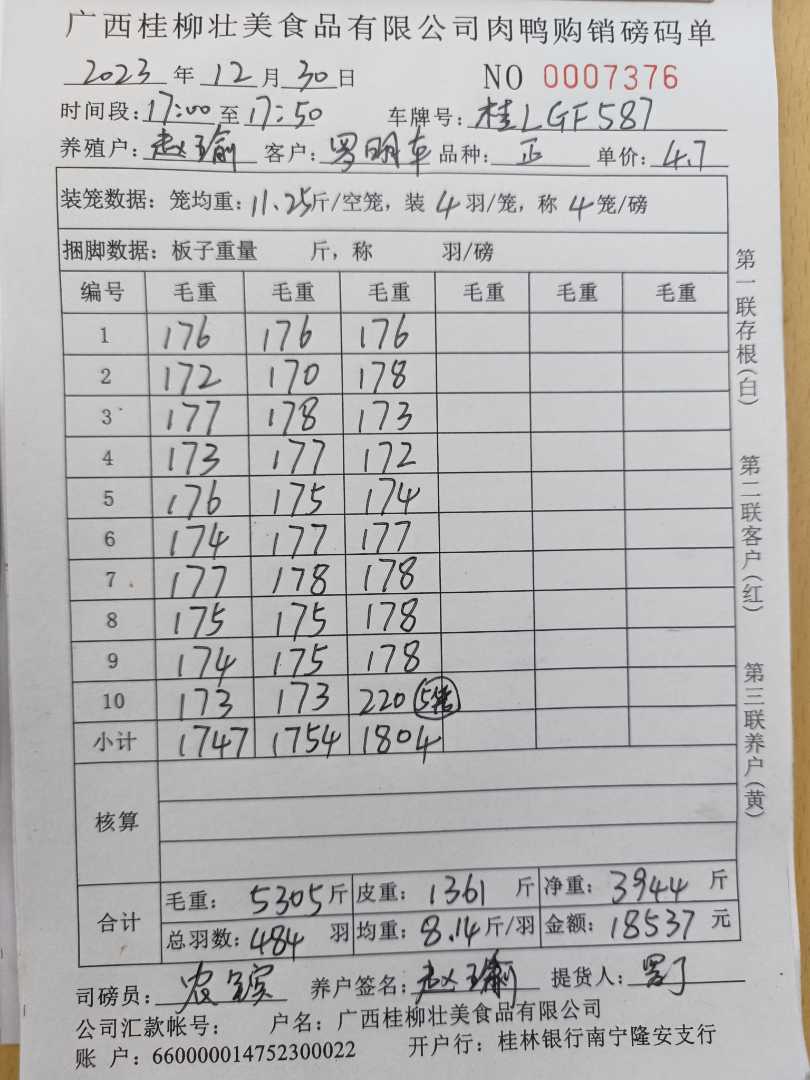 广西桂柳壮美食品有限公司肉鸭购销磅码单
2023 年 12 月 30 日 NO 0007376
时间段: 17:00 至 17:50 车牌号: 桂LGF587
养殖户: 赵瑜 客户: 罗明车 品种: 正 单价: 4.7
装笼数据: 笼均重: 11.25 斤/空笼, 装 4 羽/笼, 称 4 笼/磅
捆脚数据: 板子重量 斤, 称 羽/磅
编号 毛重 毛重 毛重 毛重 毛重 毛重
1 176 176 176
2 172 170 178
3 177 178 173
4 173 177 172
5 176 175 174
6 174 177 177
7 177 178 178
8 175 175 178
9 174 175 178
10 173 173 220 5笼
小计 1747 1754 1804
核算
合计 毛重: 5305 斤 皮重: 1361 斤 净重: 3944 斤
总羽数: 484 羽 均重: 8.14 斤/羽 金额: 18537 元
司磅员: 农 养户签名: 赵瑜 提货人: 罗
公司汇款帐号: 户名: 广西桂柳壮美食品有限公司
账 户: 660000014752300022 开户行: 桂林银行南宁隆安支行
第一联存根(白)
第二联客户(红)
第三联养户(黄)